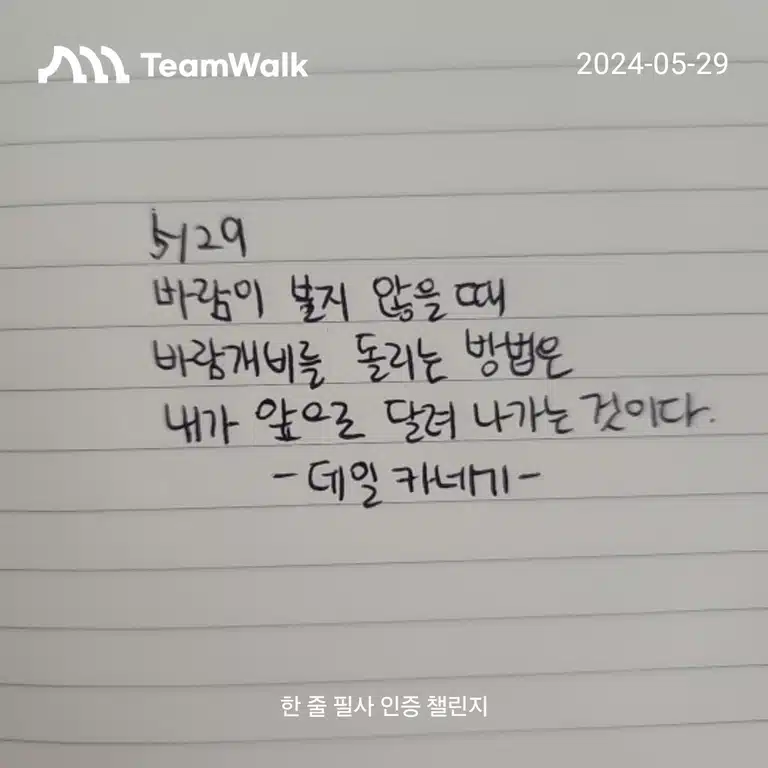 TeamWalk 2024-05-29
5/29
바람이 불지 않을 때
바람개비를 돌리는 방법은
내가 앞으로 달려 나가는 것이다.
- 데일 카네기 -
한 줄 필사 인증 챌린지